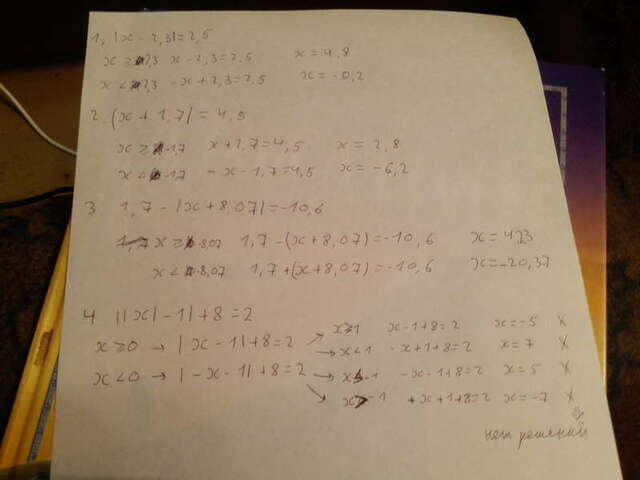 1. |x - 2,3| = 2,5
x ≥ 2,3 x - 2,3 = 2,5 x = 4,8
x < 2,3 -x + 2,3 = 2,5 x = -0,2
2. |x + 1,7| = 4,5
x ≥ -1,7 x + 1,7 = 4,5 x = 2,8
x < -1,7 -x - 1,7 = 4,5 x = -6,2
3. 1,7 - |x + 8,07| = -10,6
x ≥ -8,07 1,7 - (x + 8,07) = -10,6 x = 4,23
x < -8,07 1,7 + (x + 8,07) = -10,6 x = -20,37
4 ||x| - 1| + 8 = 2
x ≥ 0 → |x - 1| + 8 = 2 → x ≥ 1 x - 1 + 8 = 2 x = -5 X
→ x < 1 -x + 1 + 8 = 2 x = 7 X
x < 0 → |-x - 1| + 8 = 2 → x ≤ -1 -x - 1 + 8 = 2 x = 5 X
→ x > -1 +x + 1 + 8 = 2 x = -7 X
⇓
нет решений